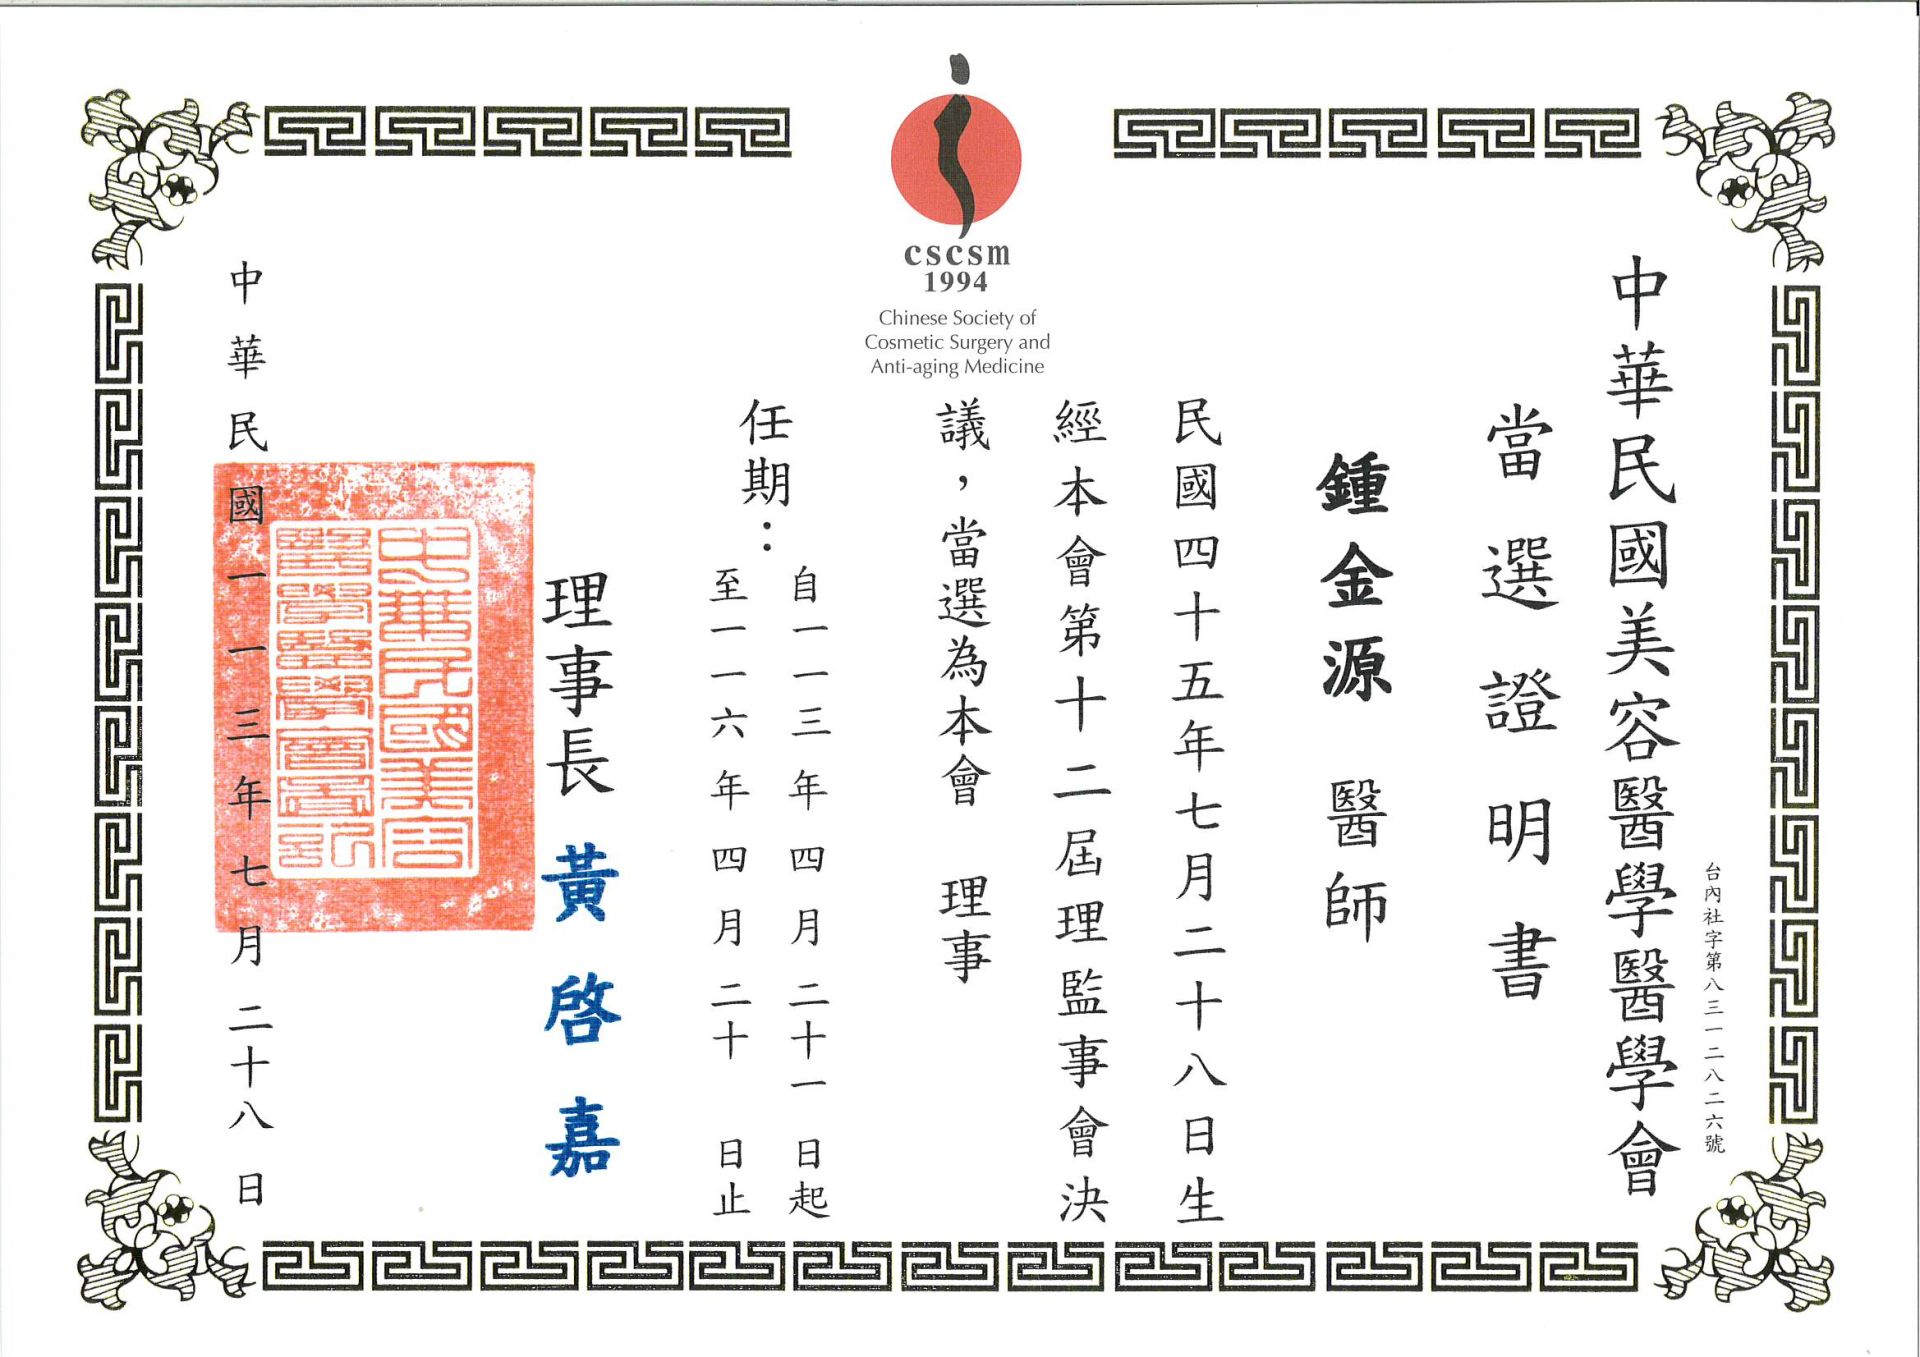 cscsm
1994
Chinese Society of
Cosmetic Surgery and
Anti-aging Medicine
台內社字第八三一二八二六號
中華民國美容醫學醫學會
當選證明書
鍾金源 醫師
民國四十五年七月二十八日生
經本會第十二屆理監事會決
議，當選為本會 理事
任期：
自一一三年四月二十一日起
至一一六年四月二十 日止
理事長 黃啓嘉
中華民國美容
醫學醫學會圖記
中華民國一一三年七月二十八日